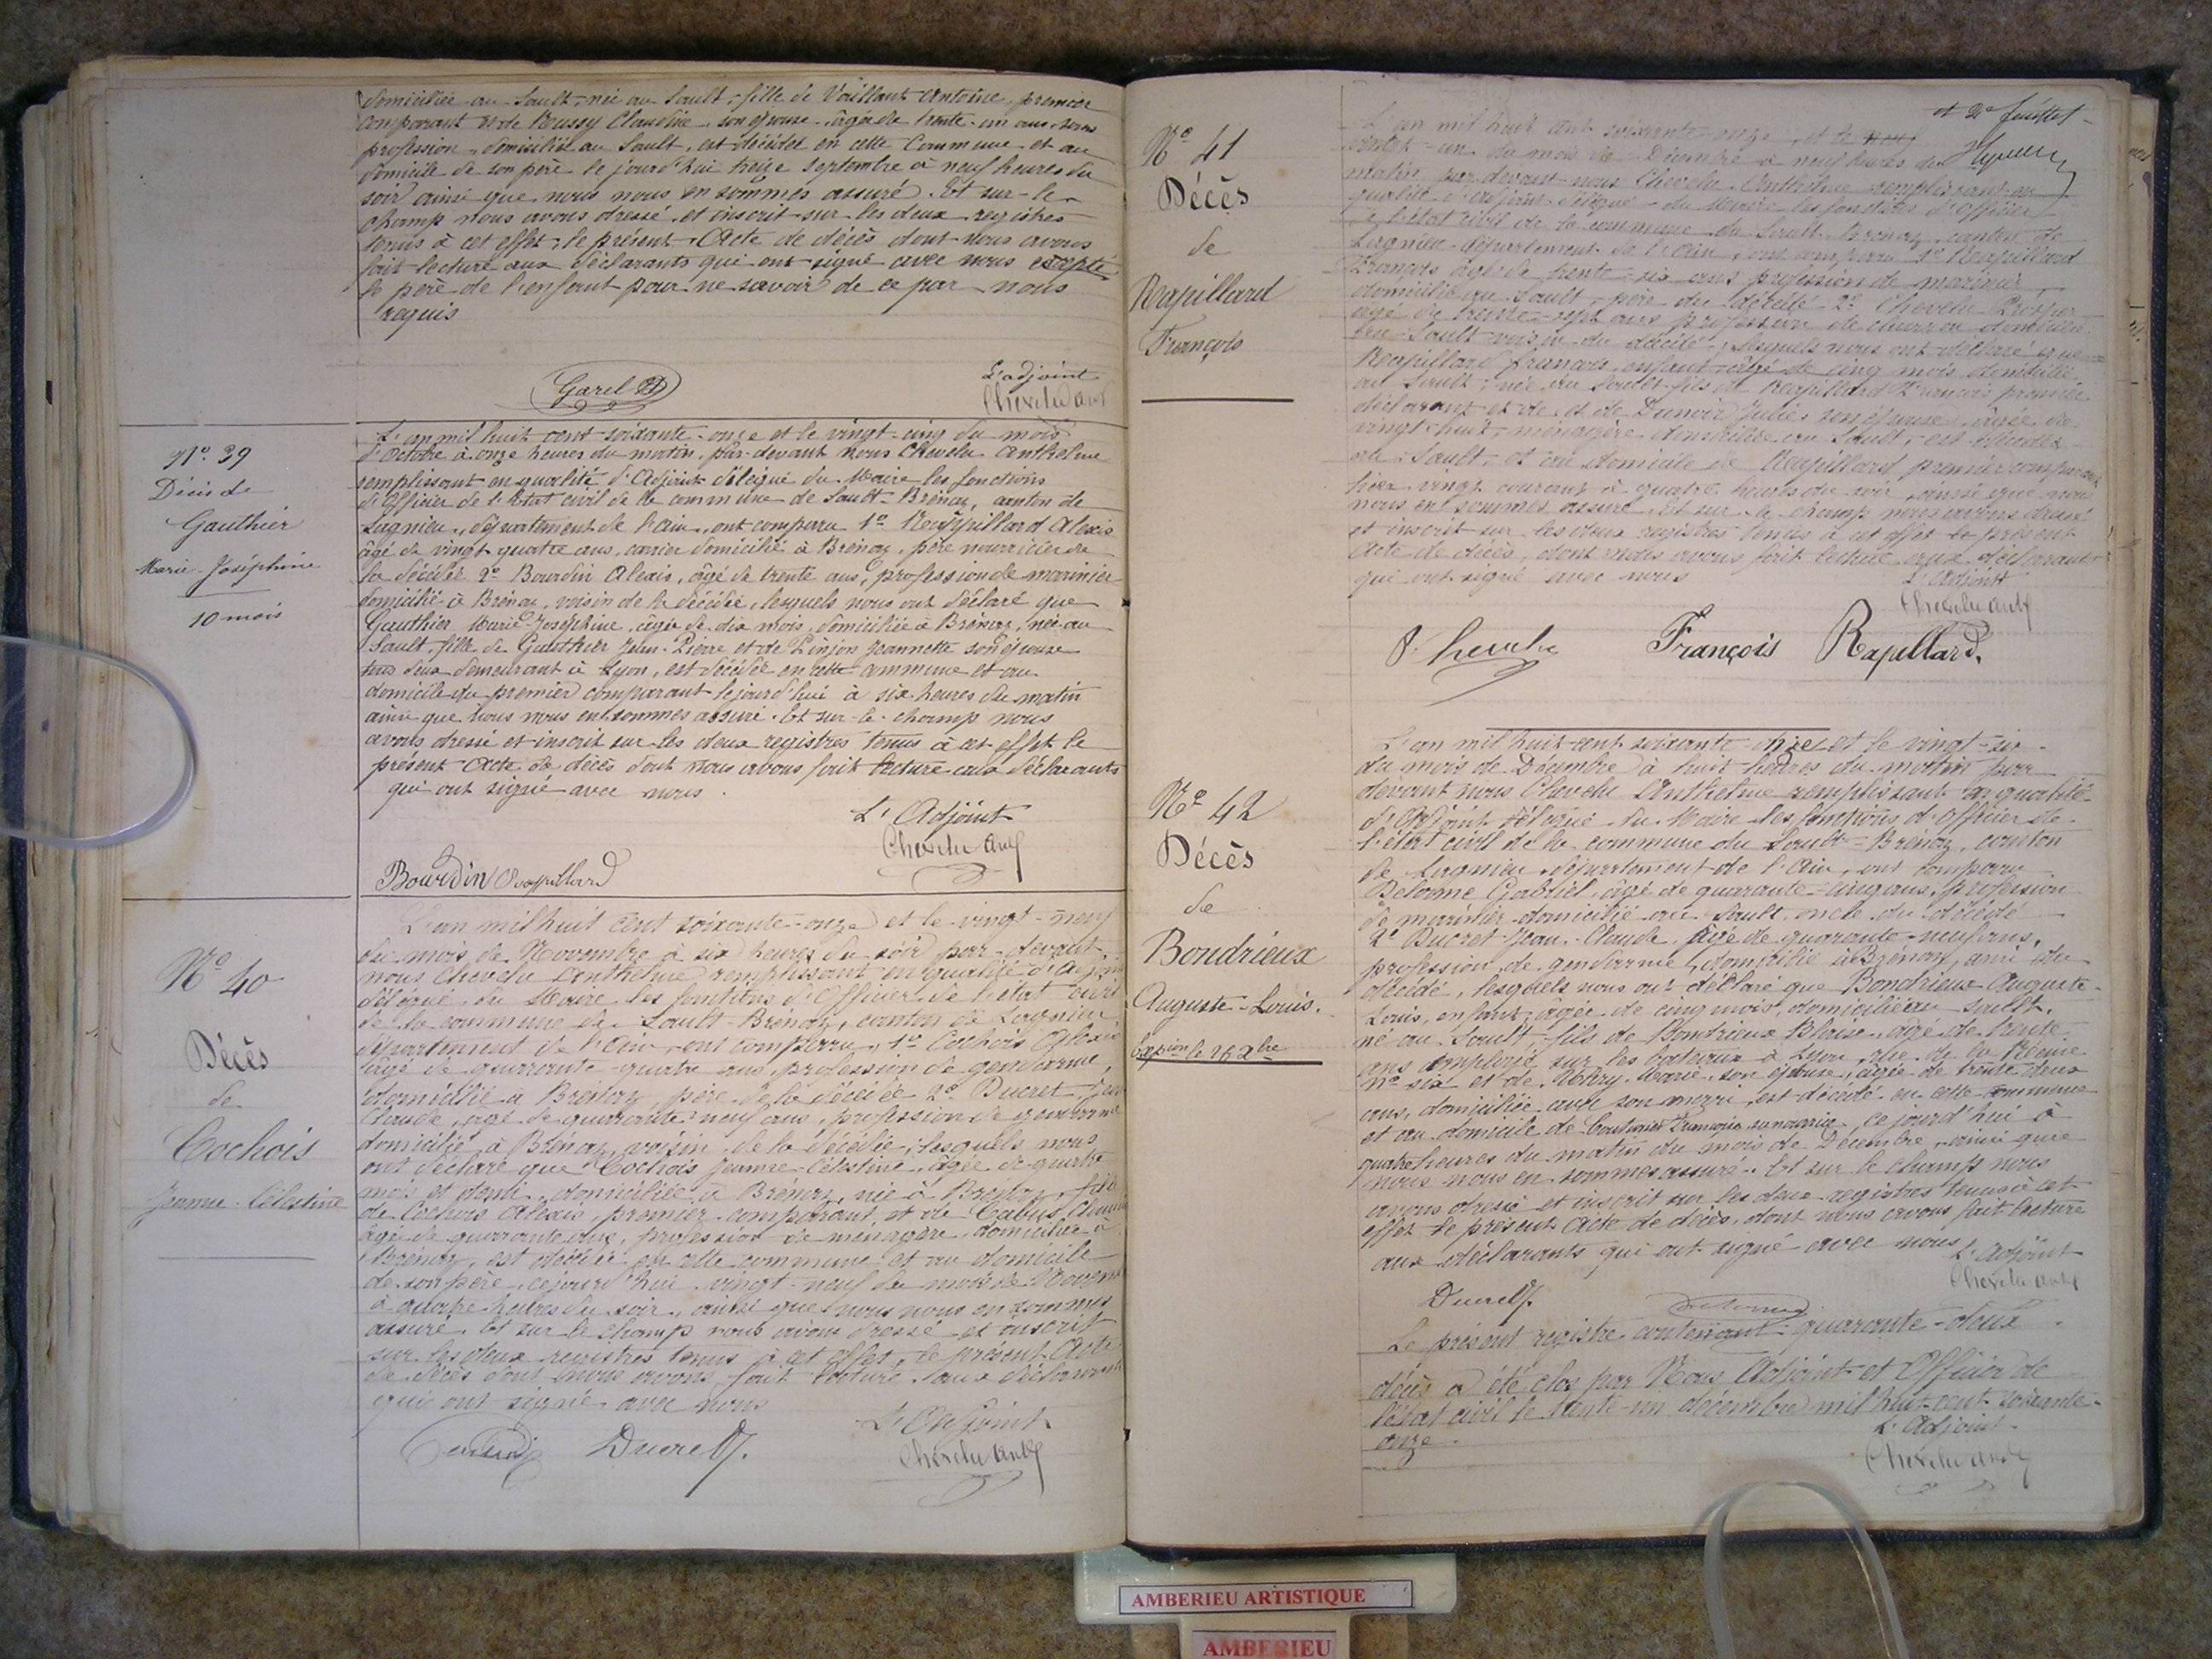 domiciliée au Sault, née au Sault, fille de Vaillant Antoine, premier
comparant et de Roussy Claudine son épouse, âgée de trente-un ans, sans
profession, domiciliée au Sault, est décédée en cette Commune et au
domicile de son père le jourd'hui treize septembre à neuf heures du
soir ainsi que nous nous en sommes assuré. Et sur-le-
champ nous avons dressé et inscrit sur les deux registres
tenus à cet effet, le présent Acte de décès dont nous avons
fait lecture aux déclarants qui ont signé avec nous excepté
le père de l'enfant pour ne savoir de ce par nous
requis
Garel
L'adjoint
Chevelu Anth
N° 39
Décès de
Gauthier
Marie-Joséphine
10 mois
L'an mil huit cent soixante-onze et le vingt-cinq du mois
d'Octobre à onze heures du matin, par-devant nous Chevelu Anthelme
remplissant en qualité d'Adjoint délégué du Maire les fonctions
d'Officier de l'Etat civil de la commune de Sault-Brénaz, canton de
Lagnieu, département de l'Ain, ont comparu 1° Rappillard Alexis
âgé de vingt-quatre ans, carrier domicilié à Brénaz, père nourricier de
la décédée 2° Bourdin Alexis, âgé de trente ans, profession de marinier
domicilié à Brénaz, voisin de la décédée, lesquels nous ont déclaré que
Gauthier Marie-Joséphine, âgée de dix mois, domiciliée à Brénaz, née au
Sault, fille de Gauthier Jean-Pierre et de Jeannette son épouse
tous deux demeurant à Lyon, est décédée en cette commune et au
domicile du premier comparant le jourd'hui à six heures du matin
ainsi que nous nous en sommes assuré. Et sur-le-champ nous
avons dressé et inscrit sur les deux registres tenus à cet effet le
présent Acte de décès dont nous avons fait lecture aux déclarants
qui ont signé avec nous.
L'Adjoint
Chevelu Anth
Bourdin Rappillard
N° 40
Décès
de
Cochois
Jeanne-Célestine
L'an mil huit cent soixante-onze et le vingt-neuf
du mois de Novembre à six heures du soir par-devant
nous Chevelu Anthelme remplissant en qualité d'Adjoint
délégué du Maire les fonctions d'Officier de l'état civil
de la commune de Sault-Brénaz, canton de Lagnieu
département de l'Ain, ont comparu, 1° Cochois Alexis
âgé de quarante-quatre ans, profession de gendarme,
domicilié à Brénaz, père de la décédée 2° Ducret Jean
Claude, âgé de quarante-neuf ans, profession de gendarme
domicilié à Brénaz, voisin de la décédée; lesquels nous
ont déclaré que Cochois Jeanne-Célestine, âgée de quatre
mois et demi, domiciliée à Brénaz, née à Brénaz, fille
de Cochois Alexis, premier comparant, et de
âgée de quarante ans, profession de ménagère, domiciliée à
Brénaz, est décédée en cette commune et au domicile
de son père, ce jourd'hui vingt-neuf du mois de Novembre
à quatre heures du soir, ainsi que nous nous en sommes
assuré. Et sur le champ nous avons dressé et inscrit
sur les deux registres tenus à cet effet, le présent Acte
de décès dont nous avons fait lecture aux déclarants
qui ont signé avec nous
L'Adjoint
Ducret J.
Chevelu Anth
et 2e feuillet
N° 41
Décès
de
Rapillard
François
L'an mil huit cent soixante-onze, et le
vingt-un du mois de Décembre à neuf heures du
matin, par devant nous Chevelu Anthelme remplissant en
qualité d'adjoint délégué du Maire les fonctions d'Officier
de l'état civil de la commune du Sault-Brénaz, canton de
Lagnieu département de l'Ain, ont comparu 1° Rapillard
François âgé de trente-six ans profession de marinier,
domicilié au Sault, père du décédé 2° Chevelu Prosper
âgé de trente-sept ans profession de domicilié
au Sault voisin du décédé; lesquels nous ont déclaré que
Rapillard François enfant âgé de cinq mois domicilié
au Sault, né au Sault fils de Rapillard François premier
déclarant et de et de Julie son épouse âgée de
vingt-huit, ménagère domiciliée au Sault, est décédé
au Sault et au domicile de Rapillard premier comparant
hier vingt courant à quatre heures du soir ainsi que nous
nous en sommes assuré. Et sur le champ nous avons dressé
et inscrit sur les deux registres tenus à cet effet le présent
Acte de décès, dont nous avons fait lecture aux déclarants
qui ont signé avec nous
L'Adjoint
Chevelu Anth
P. Chevelu François Rapillard.
N° 42
Décès
de
Bondrieux
Auguste-Louis.
L'an mil huit cent soixante-onze et le vingt-six
du mois de Décembre à huit heures du matin par
devant nous Chevelu Anthelme remplissant en qualité
d'Adjoint délégué du Maire les fonctions d'Officier de
l'état civil de la commune du Sault-Brénaz, canton
de Lagnieu, département de l'Ain, ont comparu
Delorme Gabriel, âgé de quarante-cinq ans, profession
de marinier domicilié au Sault, oncle du décédé
2° Ducret Jean-Claude, âgé de quarante-neuf ans,
profession de gendarme, domicilié à Brénaz, ami du
décédé, lesquels nous ont déclaré que Bondrieux Auguste-
Louis, enfant, âgé de cinq mois, domicilié au Sault,
né au Sault, fils de Bondrieux Blaise, âgé de trente
ans employé sur les bateaux à Lyon, rue de la Reine
n° six et de Marie, son épouse, âgée de trente deux
ans, domiciliée avec son mari, est décédé en cette commune
et au domicile de François sa nourrice, ce jourd'hui à
quatre heures du matin du mois de Décembre, ainsi que
nous nous en sommes assuré. Et sur le champ nous
avons dressé et inscrit sur les deux registres tenus à cet
effet le présent Acte de décès, dont nous avons fait lecture
aux déclarants qui ont signé avec nous
L'Adjoint
Chevelu Anth
Ducret J. Delorme
Le présent registre contenant quarante-deux
décès a été clos par Nous Adjoint et Officier de
l'état civil le trente-un décembre mil huit cent soixante-
onze.
L'Adjoint
Chevelu Anth
AMBERIEU ARTISTIQUE
AMBERIEU